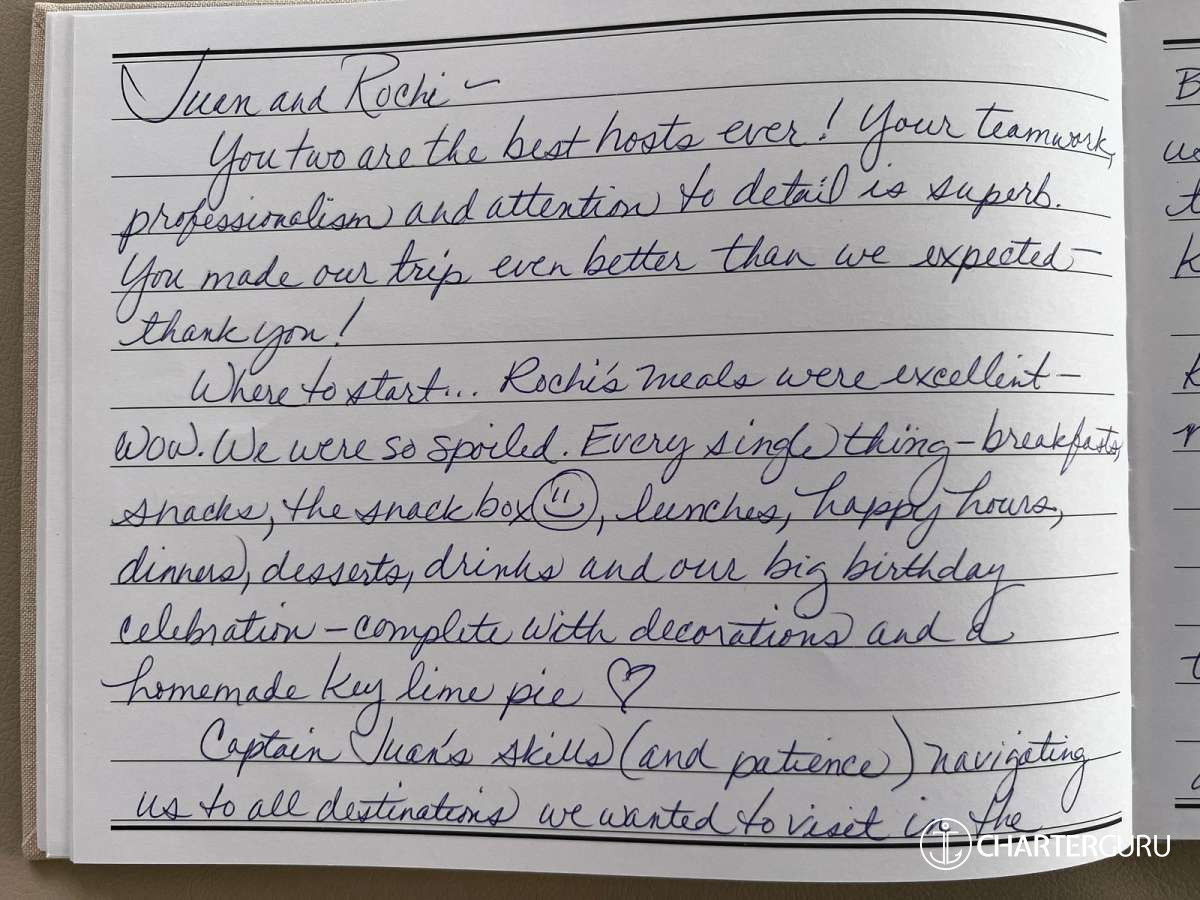 Juan and Rochi –
You two are the best hosts ever! Your teamwork,
professionalism and attention to detail is superb.
You made our trip even better than we expected –
thank you!
Where to start... Rochi's meals were excellent –
wow. We were so spoiled. Every single thing – breakfasts,
snacks, the snack box ☺, lunches, happy hours,
dinners, desserts, drinks and our big birthday
celebration – complete with decorations and a
homemade key lime pie ♡
Captain Juan's skills (and patience) navigating
us to all destinations we wanted to visit in the
CHARTERGURU